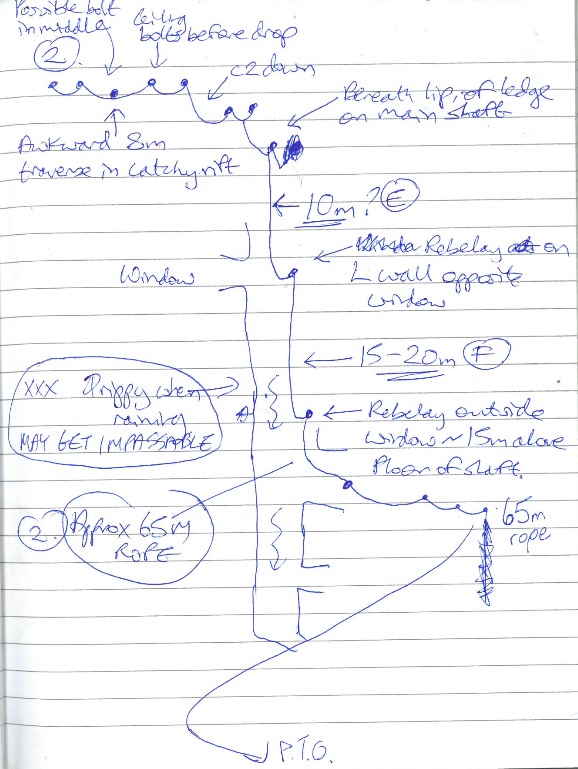 Possible bolt
in middle
Ceiling
bolts before drop
2.
c2 down
Beneath lip, of ledge
on main shaft
Awkward 8m
traverse in catchy rift
10m? E
Rebelay on
L wall opposite
window
Window
15-20m F
XXX Drippy when
raining
MAY GET IMPASSABLE
Rebelay outside
window ~15m above
floor of shaft.
2. Approx 65m
ROPE
65m
rope
P.T.O.